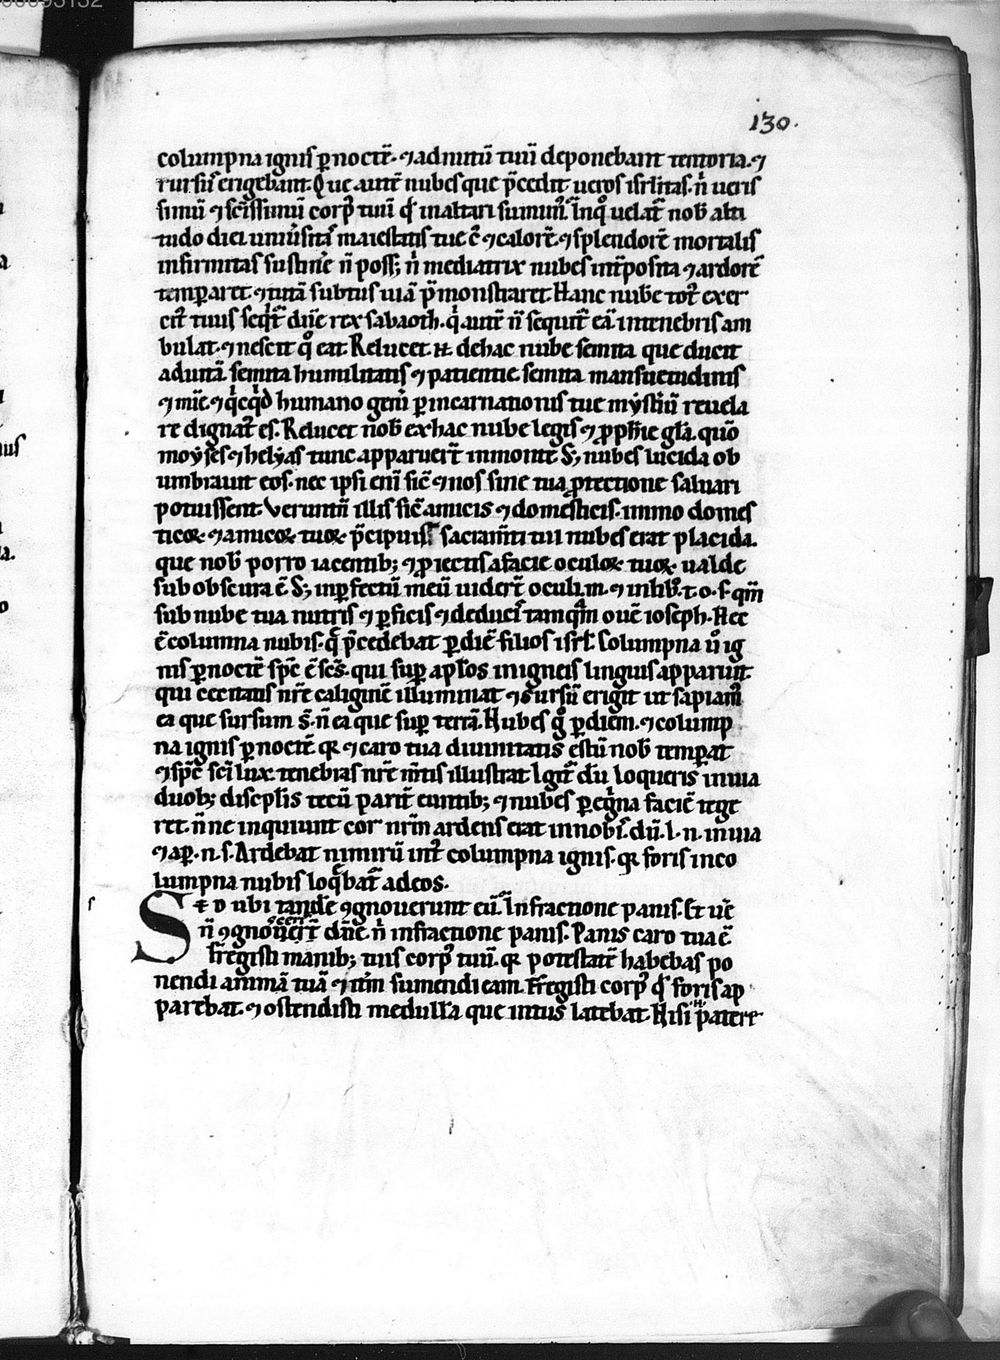 130.
columpna ignis ꝑ noctē. ⁊ ad nutū tuū deponebant temtoria. ⁊
rursū erigebant. Que autē nubes que p̄cedit ueros isrl̄itas. n̄ ueris
simū ⁊ sc̄issimū corpꝰ tuū qd̄ in altari sumimꝰ. In qͦ uelat̄ nob̄ alti
tudo diei. uniūsitas maiestatis tue ē. ⁊ calorē. ⁊ splendorē mortalis
infirmitas sustine n̄ poss; n̄ mediatrix nubes int̄posita ⁊ ardorē
temꝑaret. ⁊ tutā subtus uiā p̄monstraret. Hanc nubē tot exer
citꝰ tuus seqt̄ dn̄e rex sabaoth. qͥ autē n̄ sequit̄ eā. in tenebris am
bulat. ⁊ nescit qͦ eat. Relucet de hac nube semita que ducit
ad uitā. semita humilitatis ⁊ patientie. semita mansuetudinis
⁊ mīe. ⁊ qͥcqͥd humano genī ꝑ incarnationis tue mysteriū reuela
re dignatꝰ es. Relucet nob̄ ex hac nube legis ⁊ ꝓph̄ie gl̄a. quō
moyses ⁊ helyas tunc apparuer̄t in monte. S; nubes lucida ob
umbrauit eos. nec ipsi enī sic̄ ⁊ nos sine tua ꝓtectione saluari
potuissent. Verunt̄n illis sic̄ amicis ⁊ domesticis. immo domes
ticoꝝ ⁊ amicoꝝ tuoꝝ p̄cipuis sacram̄ti tui nubes erat placida.
que nob̄ porro iacentib; ⁊ ꝓiectis a facie oculoꝝ tuoꝝ ualde
sub obscura ē. S; inꝑfectū meū uider̄t oculi. m. ⁊ in lib̄. t. o. s. qm̄
sub nube tua nutris ⁊ ꝑficis ⁊ deducis tamqm̄ ouē ioseph. Hec
ē columna nubis. q̄ p̄cedebat ꝑ diē filios isrl̄. Columpna ū ig
nis ꝑ noctē sp̄c ē sc̄s. qui suꝑ apl̄os in igneis linguis apparuit.
qui cecitatis nr̄e caliginē illuminat ⁊ sursū erigit ut sapiamꝰ
ea que sursum s̄. n̄ ea que suꝑ terrā. Nubes gͦ ꝑ diem. ⁊ colump
na ignis ꝑ noctē. qꝛ ⁊ caro tua diuinitatis estū nob̄ temꝑat
⁊ sp̄c sc̄i lux tenebras nr̄e m̄tis illustrat. Igit̄ dū loqueris in uia
duob; discipl̄is tecū parit̄ euntib; ⁊ nubes ꝑegͥna faciē tege
ret. n̄ne inquiunt cor nr̄m ardens erat in nobis. dū. l. n. in uia
⁊ aꝑ. n. s. Ardebat nimirū int̄ columpna ignis. qꝛ foris in co
lumpna nubis loqͤbat̄ ad eos.
Sed ubi tandē ꝯgnouerunt eū. In fractione panis. Et uē
n̄ ꝯgnoscerēt dn̄e n̄ in fractione panis. Panis caro tua ē
fregisti manib; tuis corpꝰ tuū. qꝛ potestatē habebas po
nendi animā tuā ⁊ it̄m sumendi eam. Fregisti corpꝰ qd̄ foris ap
parebat. ⁊ ostendisti medullā que intus latebat. Nisi patere